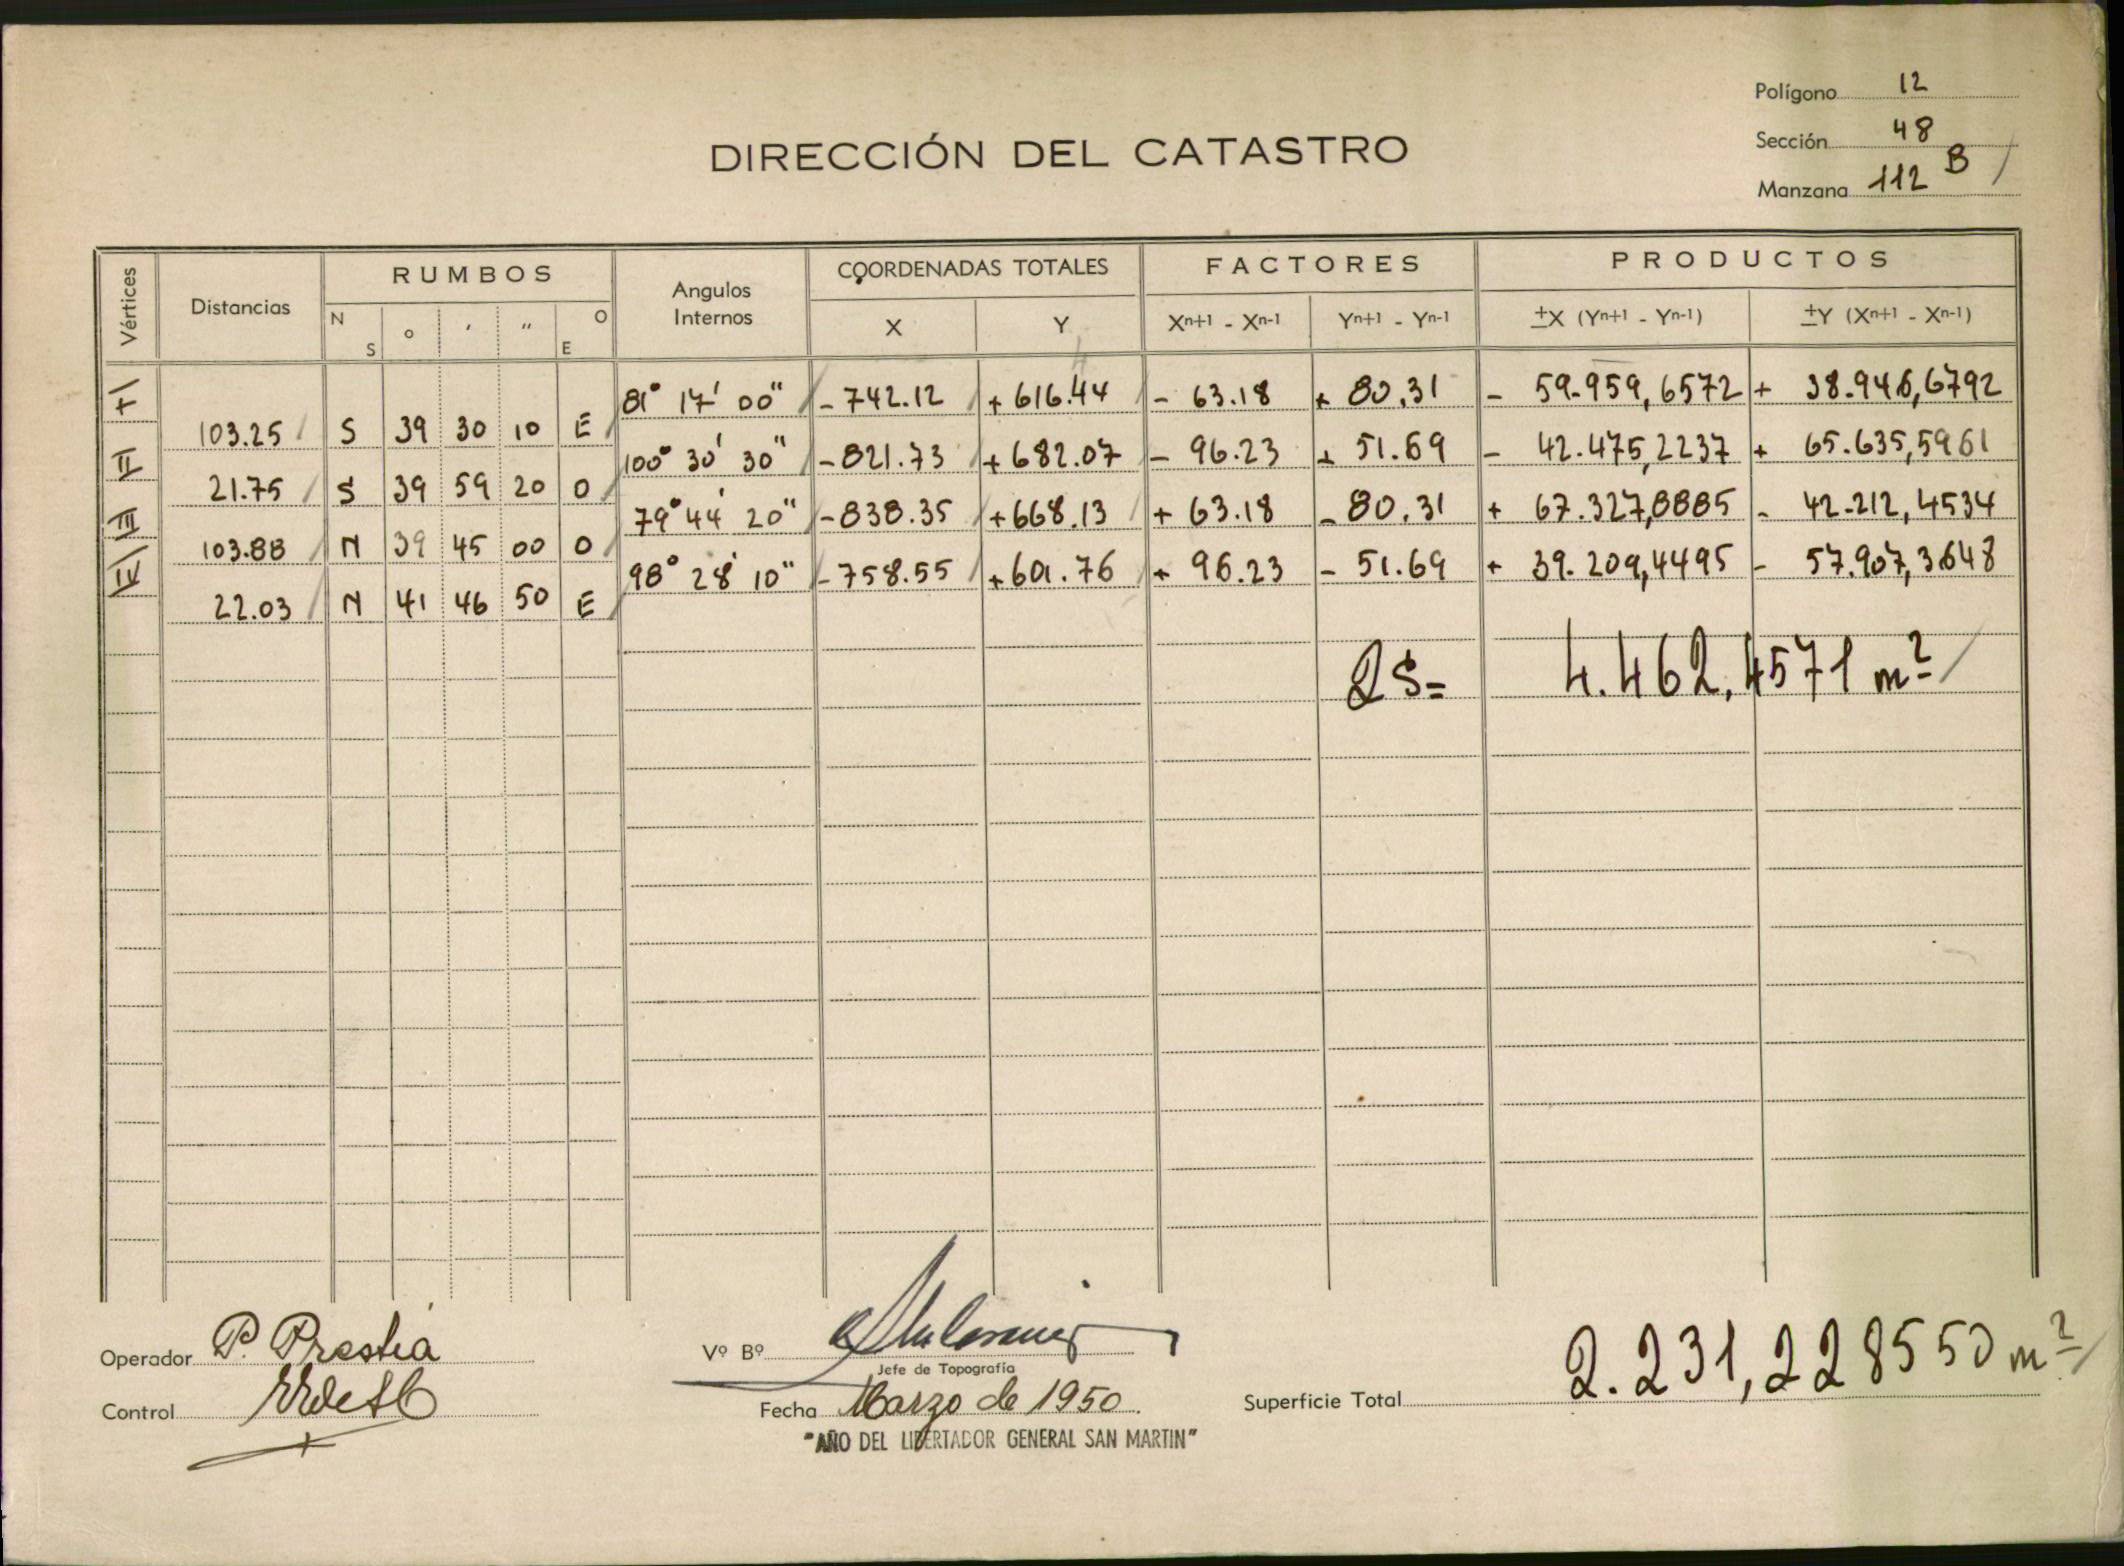 Polígono 12
Sección 48
Manzana 112 B /
DIRECCIÓN DEL CATASTRO
Vértices Distancias RUMBOS Angulos Internos COORDENADAS TOTALES FACTORES PRODUCTOS
N S ° ′ ″ O E X Y Xn+1 - Xn-1 Yn+1 - Yn-1 ±X (Yn+1 - Yn-1) ±Y (Xn+1 - Xn-1)
I 81° 17' 00" - 742.12 + 616.44 - 63.18 + 80,31 - 59.959,6572 + 38.946,6792
103.25 S 39 30 10 E
II 100° 30' 30" - 821.73 + 682.07 - 96.23 + 51.69 - 42.475,2237 + 65.635,5961
21.75 S 39 59 20 O
III 79° 44' 20" - 838.35 + 668.13 + 63.18 - 80.31 + 67.327,8885 - 42.212,4534
103.88 N 39 45 00 O
IV 98° 28' 10" - 758.55 + 601.76 + 96.23 - 51.69 + 39.209,4495 - 57.907,3648
22.03 N 41 46 50 E
2S= 4.462,4571 m²
Operador P. Prestia
Control
Vº Bº
Jefe de Topografía
Fecha Marzo de 1950.
"AÑO DEL LIBERTADOR GENERAL SAN MARTIN"
Superficie Total 2.231,228550 m²